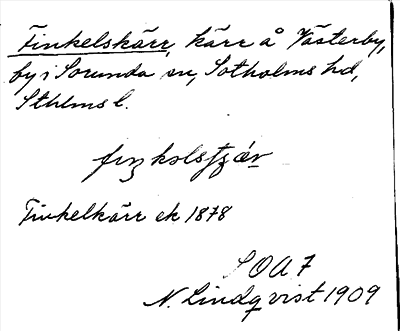 Finkelskärr, kärr å Västerby,
by i Sorunda sn, Sotholms hd,
Sthlms l.
Finkelkärr ek 1878
SOA 7
N. Lindqvist 1909